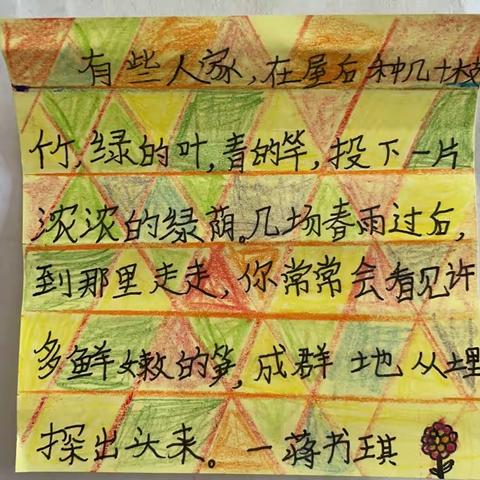 有些人家,在屋后种几十枝
竹,绿的叶,青的竿,投下一片
浓浓的绿荫。几场春雨过后,
到那里走走,你常常会看见许
多鲜嫩的笋,成群地从土里
探出头来。一蒋书琪